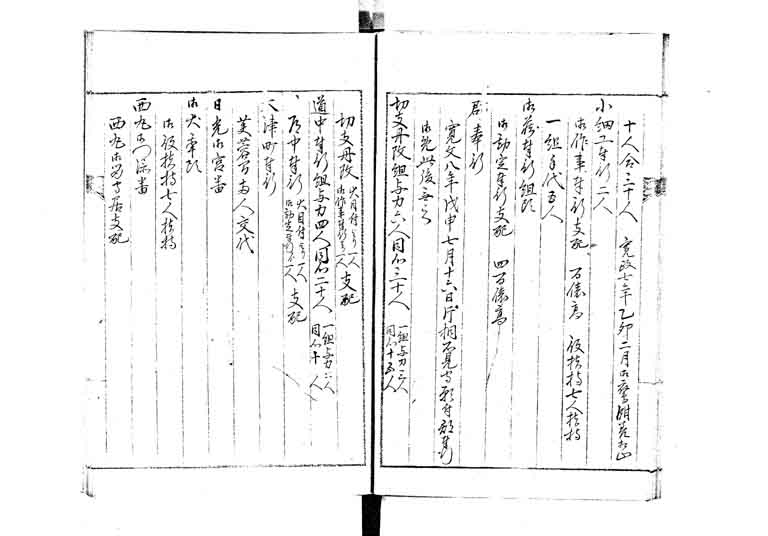 十人合三十人 寛政七年乙卯二月
小細工奉行 二人
御作事奉行支配 百俵高 役扶持七人扶持
一組手代五人
御蔵奉行組頭
御勘定奉行支配 四百俵高
郡奉行
寛文八年戊申七月十六日
此後無之
切支丹改組与力六人同心三十人 一組与力三人 同心十五人
切支丹改 大目付ヨリ一人 御作事奉行ヨリ一人 支配
道中奉行組与力四人同心二十人 一組与力二人 同心十人
道中奉行 大目付ヨリ一人 御勘定奉行ヨリ一人 支配
大津町奉行
芙蓉間 二人交代
日光御宮番
御犬牽頭
御役扶持七人扶持
西丸御門添番
西丸御留守居支配